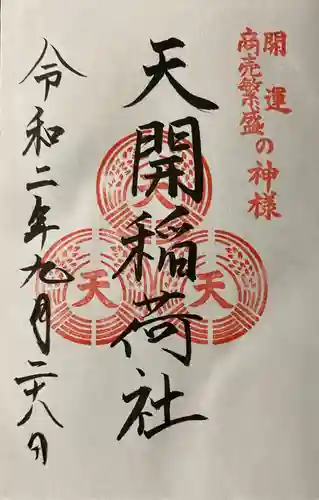 開運
商売繁盛の神様
天開稲荷社
令和二年九月二十八日
天
天
天